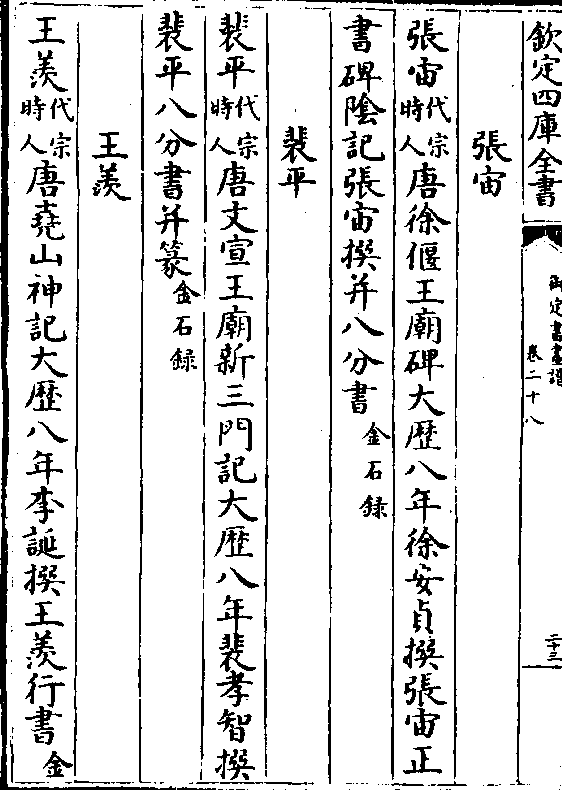 欽定四庫全書
御定書畫譜
卷二十八
二十三
張宙
張宙代宗時人唐徐偃王廟碑大歴八年徐安貞撰張宙正
書碑隂記張宙撰并八分書金石録
裴平
裴平代宗時人唐文宣王廟新三門記大歴八年裴孝智撰
裴平八分書并篆金石録
王羨
王羨代宗時人唐堯山神記大歴八年李誕撰王羨行書金